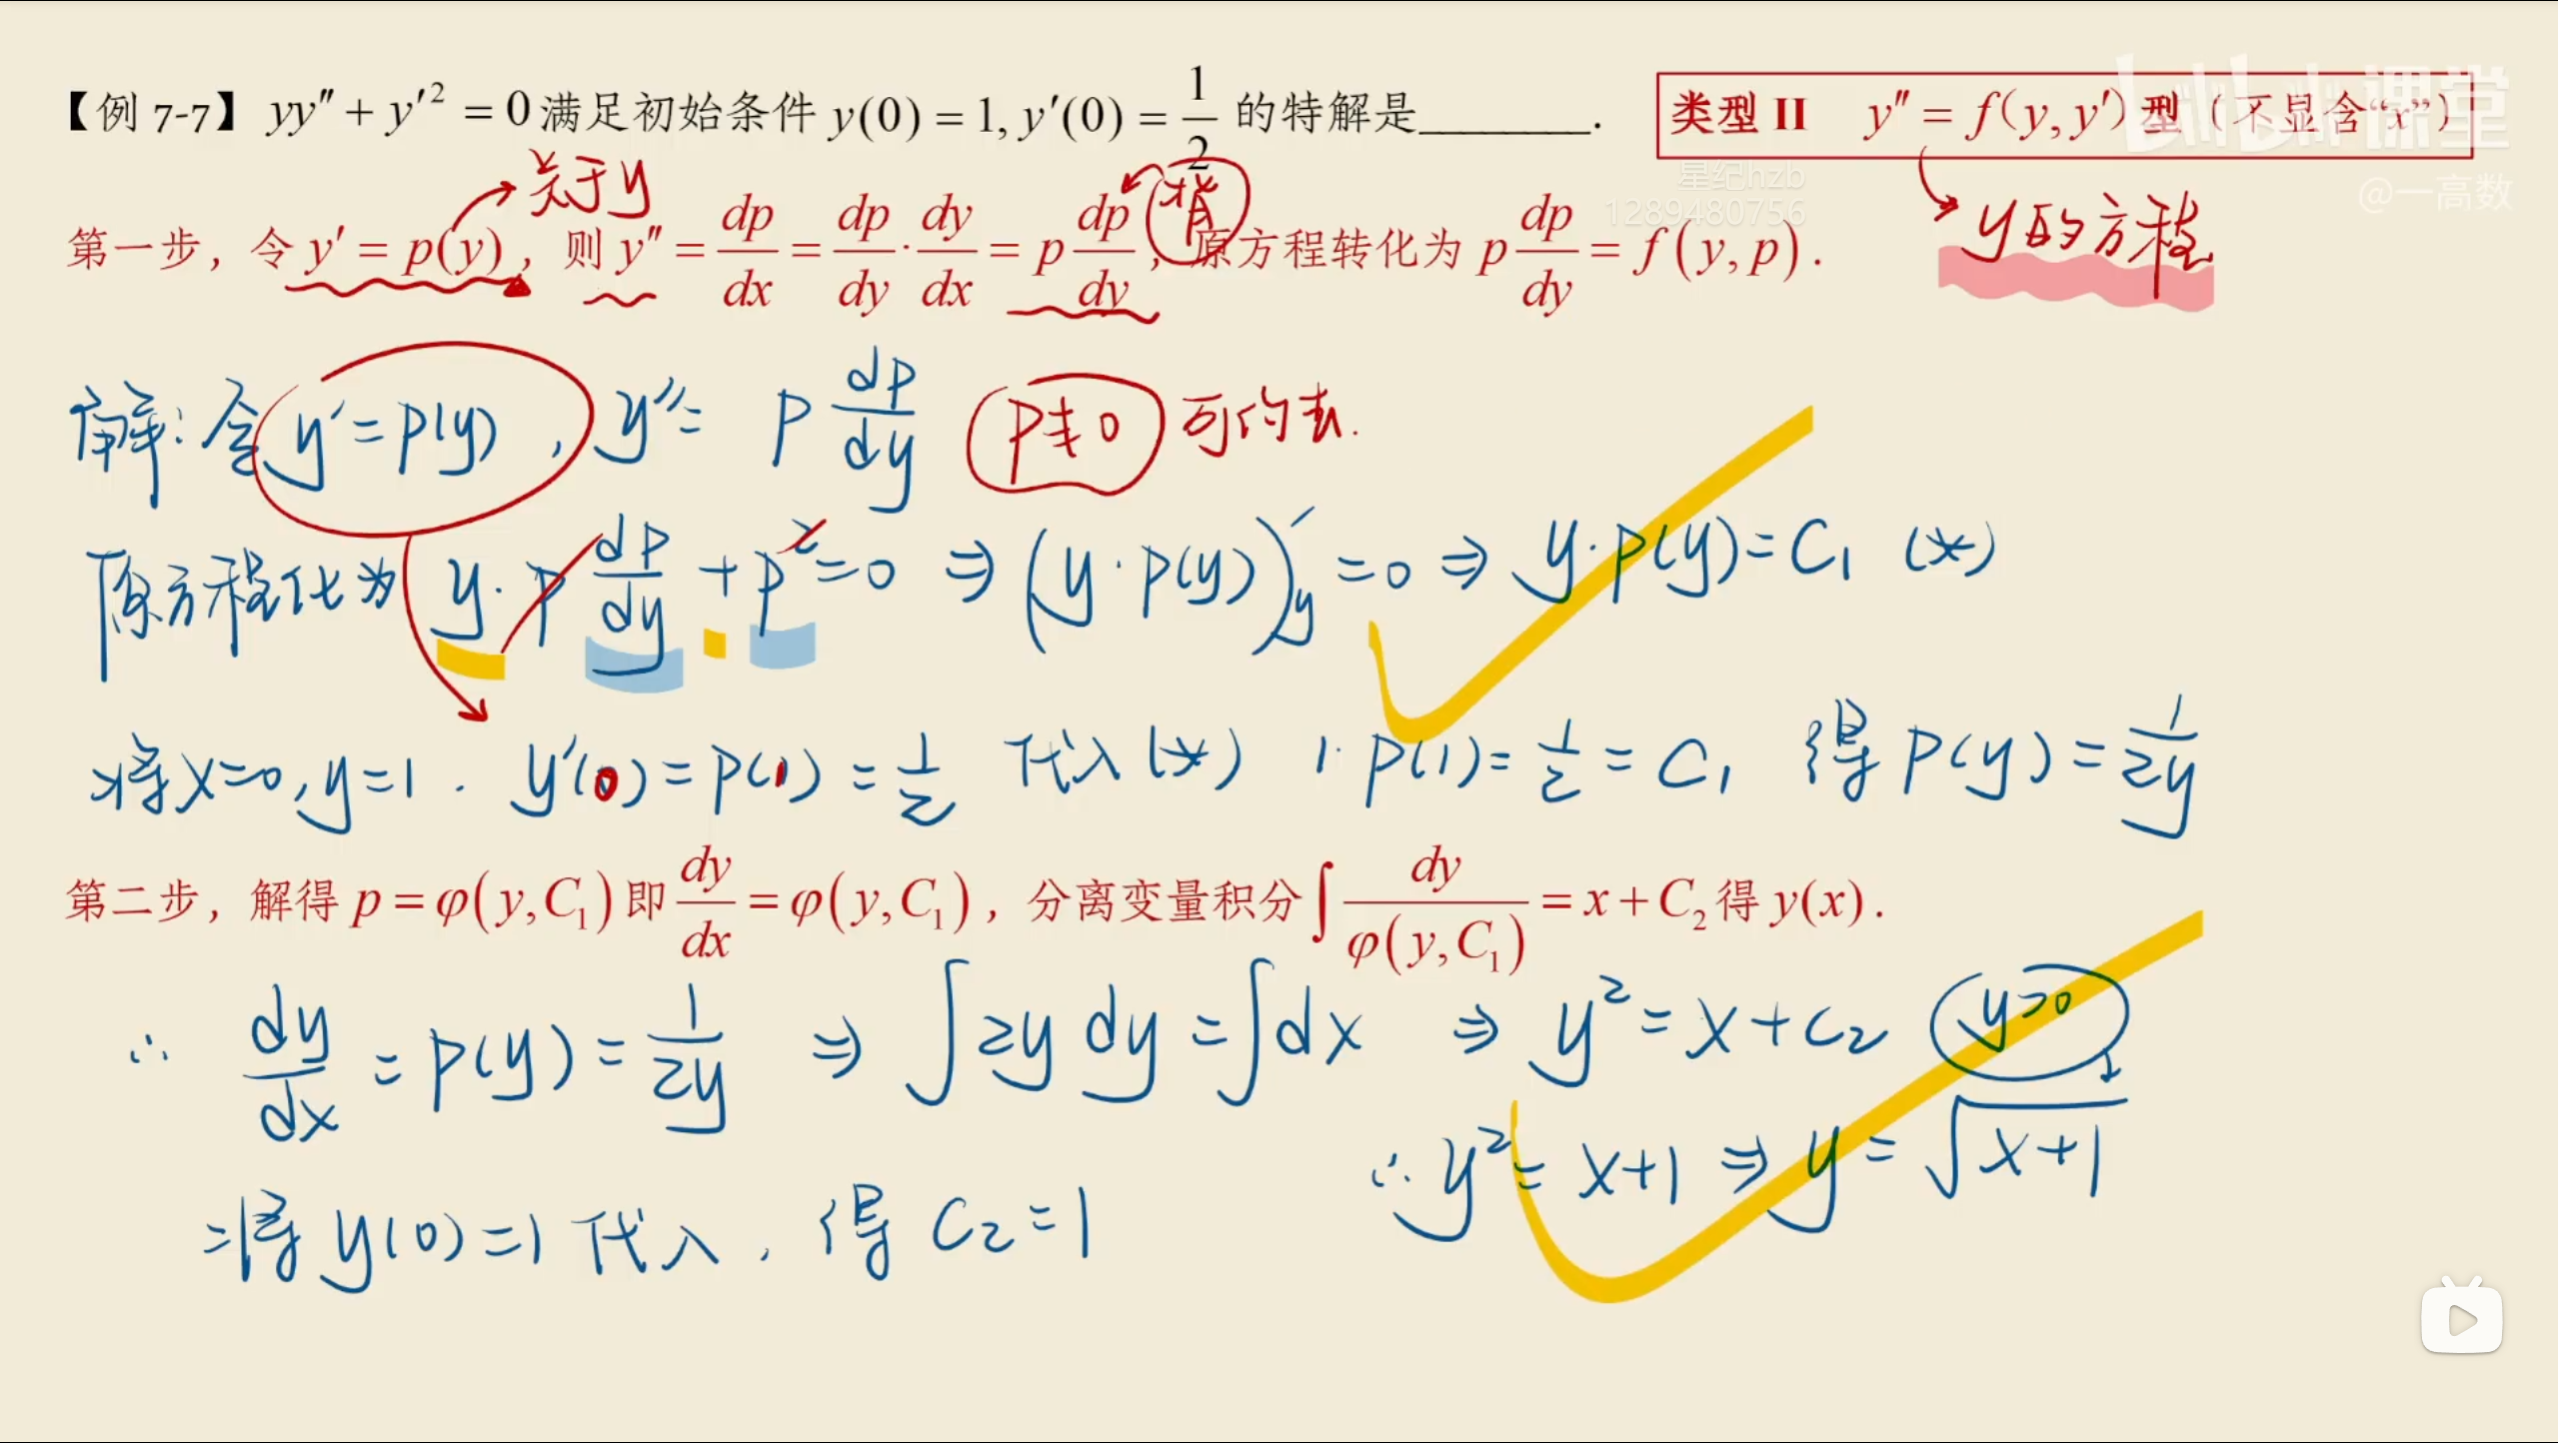 【例 7-7】 yy″ + y′² = 0 满足初始条件 y(0) = 1, y′(0) = 1/2 的特解是________.
类型 II y″ = f(y, y′) 型（不显含“x”）
bilibili课堂
@一高数
星纪hzb
1289480756
关于y
y的方程
第一步，令 y′ = p(y)，则 y″ = dp/dx = dp/dy · dy/dx = p dp/dy，原方程转化为 p dp/dy = f(y, p).
解: 令 y′ = p(y), y″ = p dp/dy p≠0 可约去.
原方程化为 y · p dp/dy + p² = 0 ⇒ (y · p(y))′y = 0 ⇒ y · p(y) = C₁ (*)
将 x=0, y=1. y′(0) = p(1) = 1/2 代入(*) 1· p(1) = 1/2 = C₁ 得 p(y) = 1/2y
第二步，解得 p = φ(y, C₁) 即 dy/dx = φ(y, C₁)，分离变量积分 ∫ dy/φ(y, C₁) = x + C₂ 得 y(x).
∴ dy/dx = p(y) = 1/2y ⇒ ∫ 2y dy = ∫ dx ⇒ y² = x + C₂ y>0
将 y(0) = 1 代入, 得 C₂ = 1 ∴ y² = x+1 ⇒ y = √(x+1)